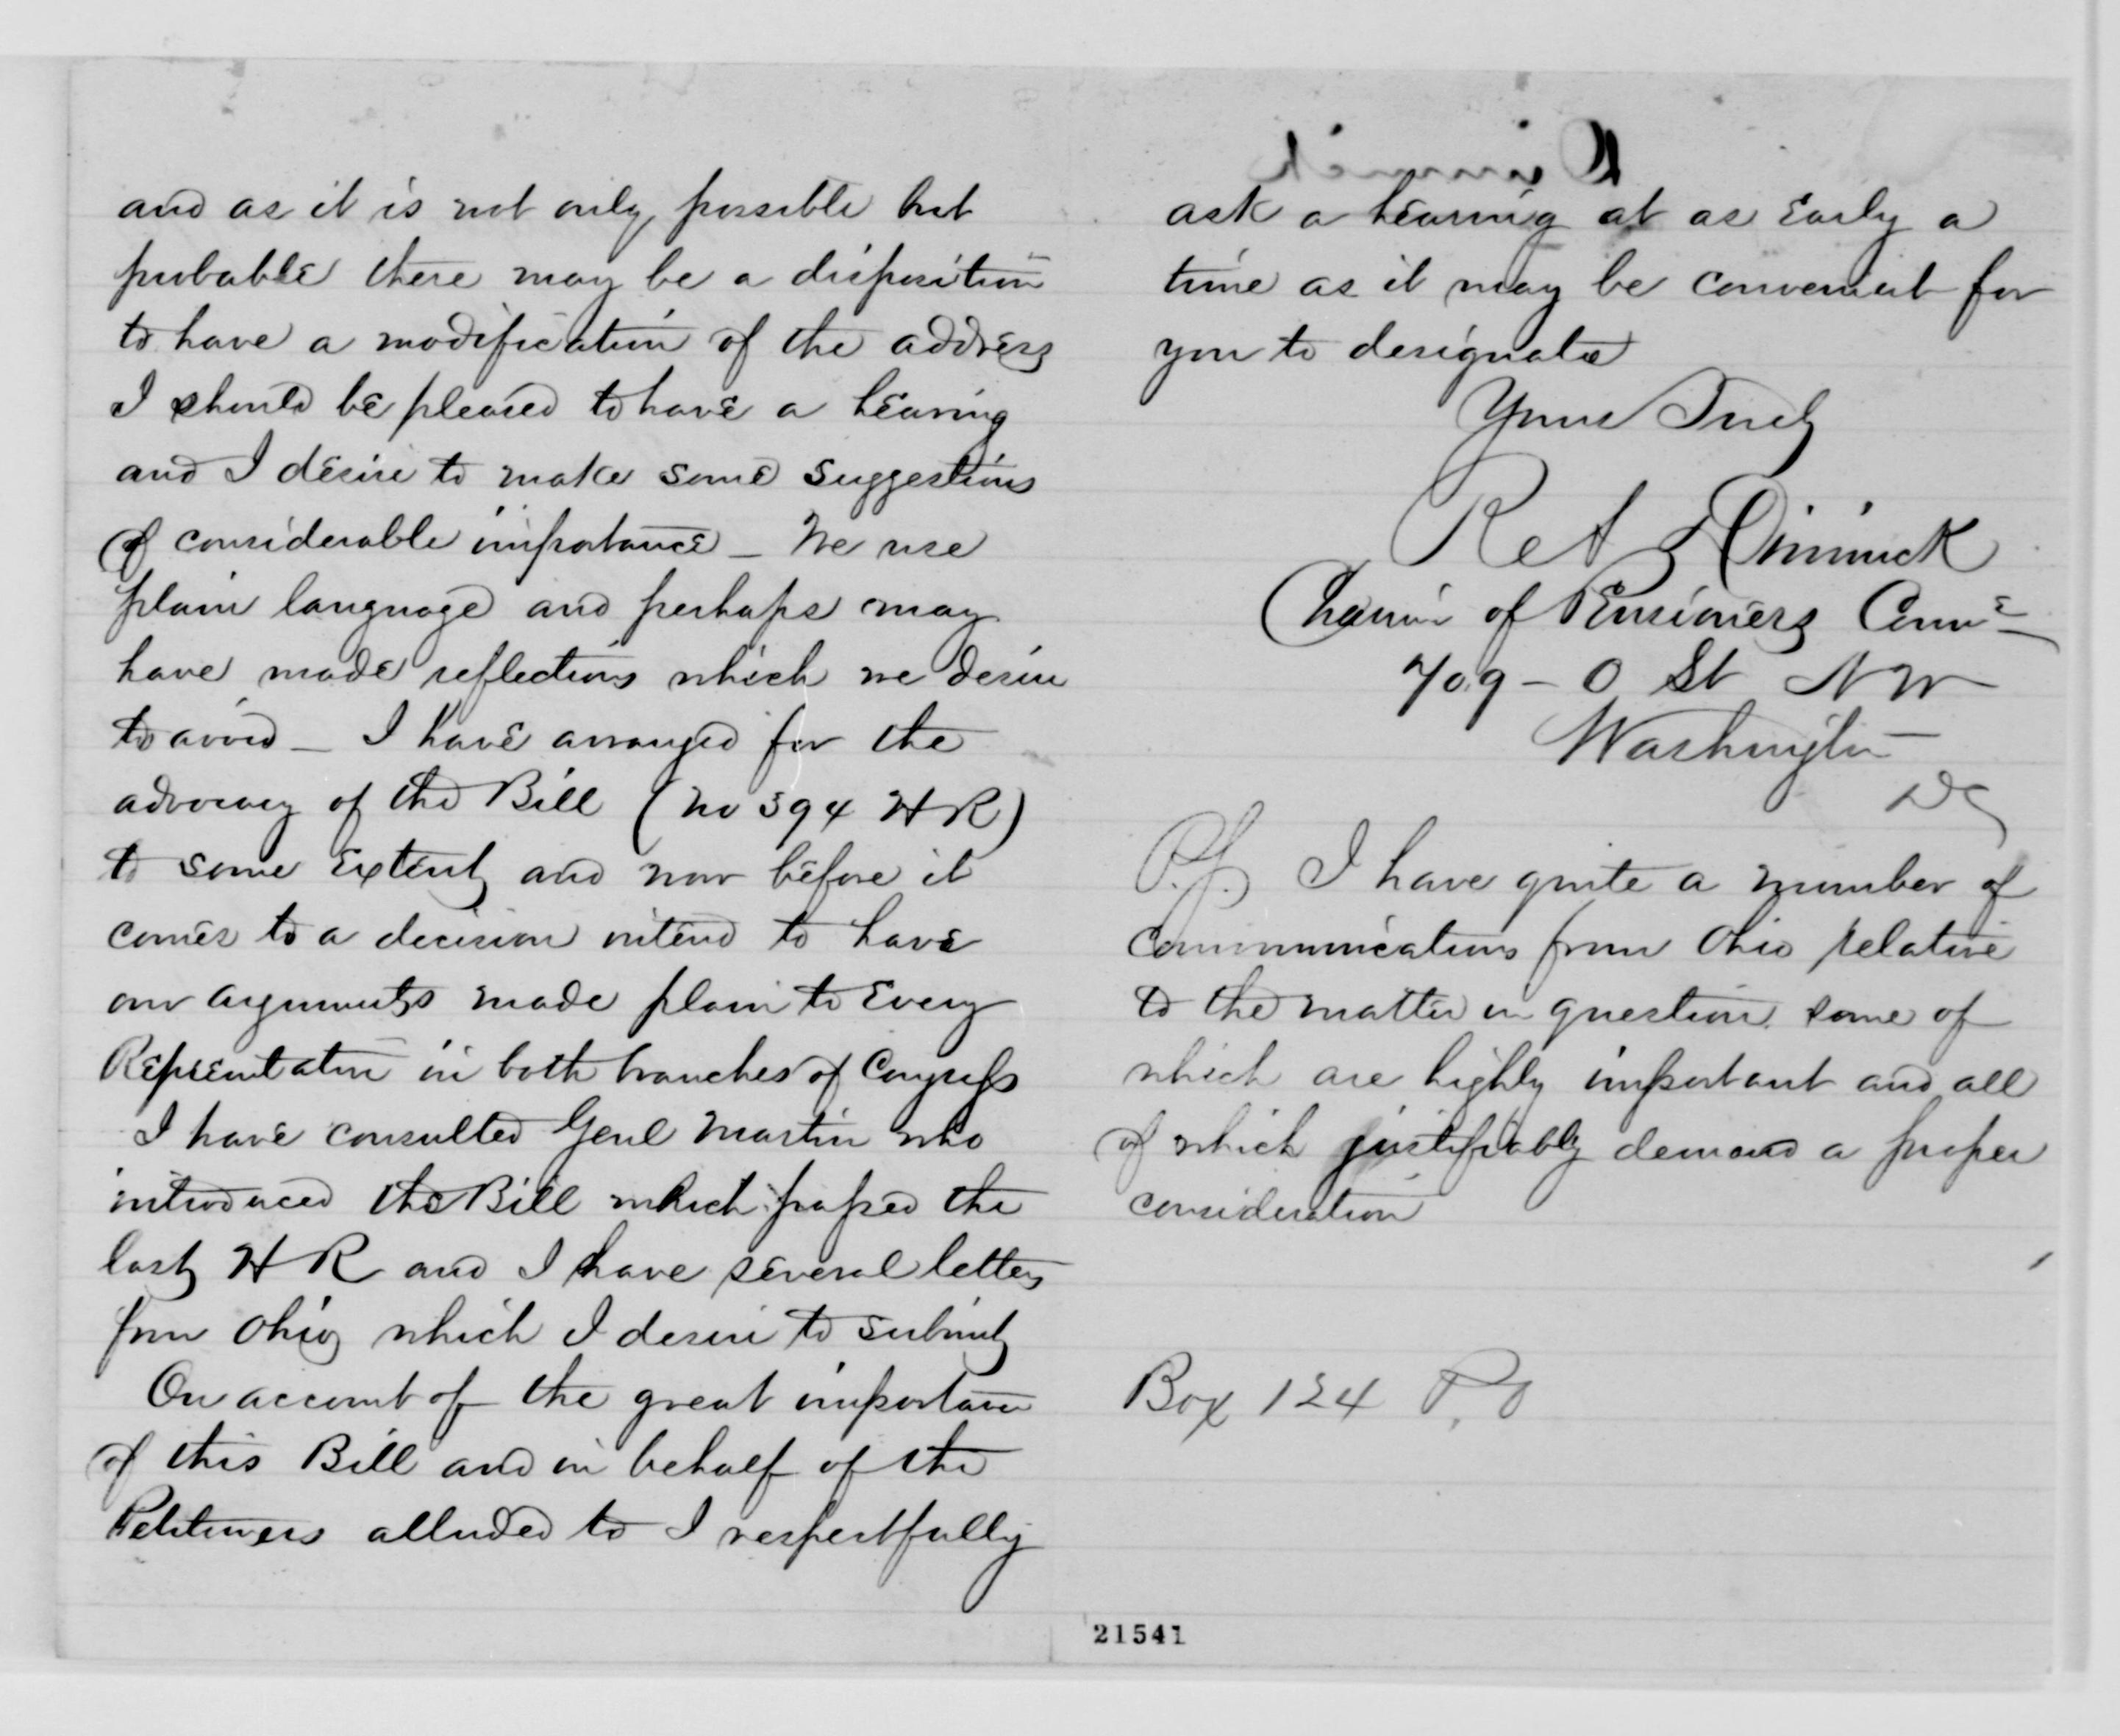 and as it is not only possible but
probable there may be a disposition
to have a modification of the address
I should be pleased to have a hearing
and I desire to make some suggestions
of considerable importance – We use
plain language and perhaps may
have made reflections which we desire
to avoid – I have arranged for the
advocacy of the Bill (No 394 H R)
to some extent and now before it
comes to a decision intend to have
our arguments made plain to Every
Representative in both branches of Congress
I have consulted Genl Martin who
introduced the Bill which passed the
last H R and I have several letters
from Ohio which I desire to submit
On account of the great importance
of this Bill and in behalf of the
Petitioners alluded to I respectfully
ask a hearing at as Early a
time as it may be convenient for
you to designate
Yours Truly
Dimmick
Chairm of Pensioners Comme
709 – O St N W
Washington
D C
P.S. I have quite a number of
communications from Ohio relative
to the matter in question some of
which are highly important and all
of which justifiably demand a proper
consideration
Box 124 P.O
21541